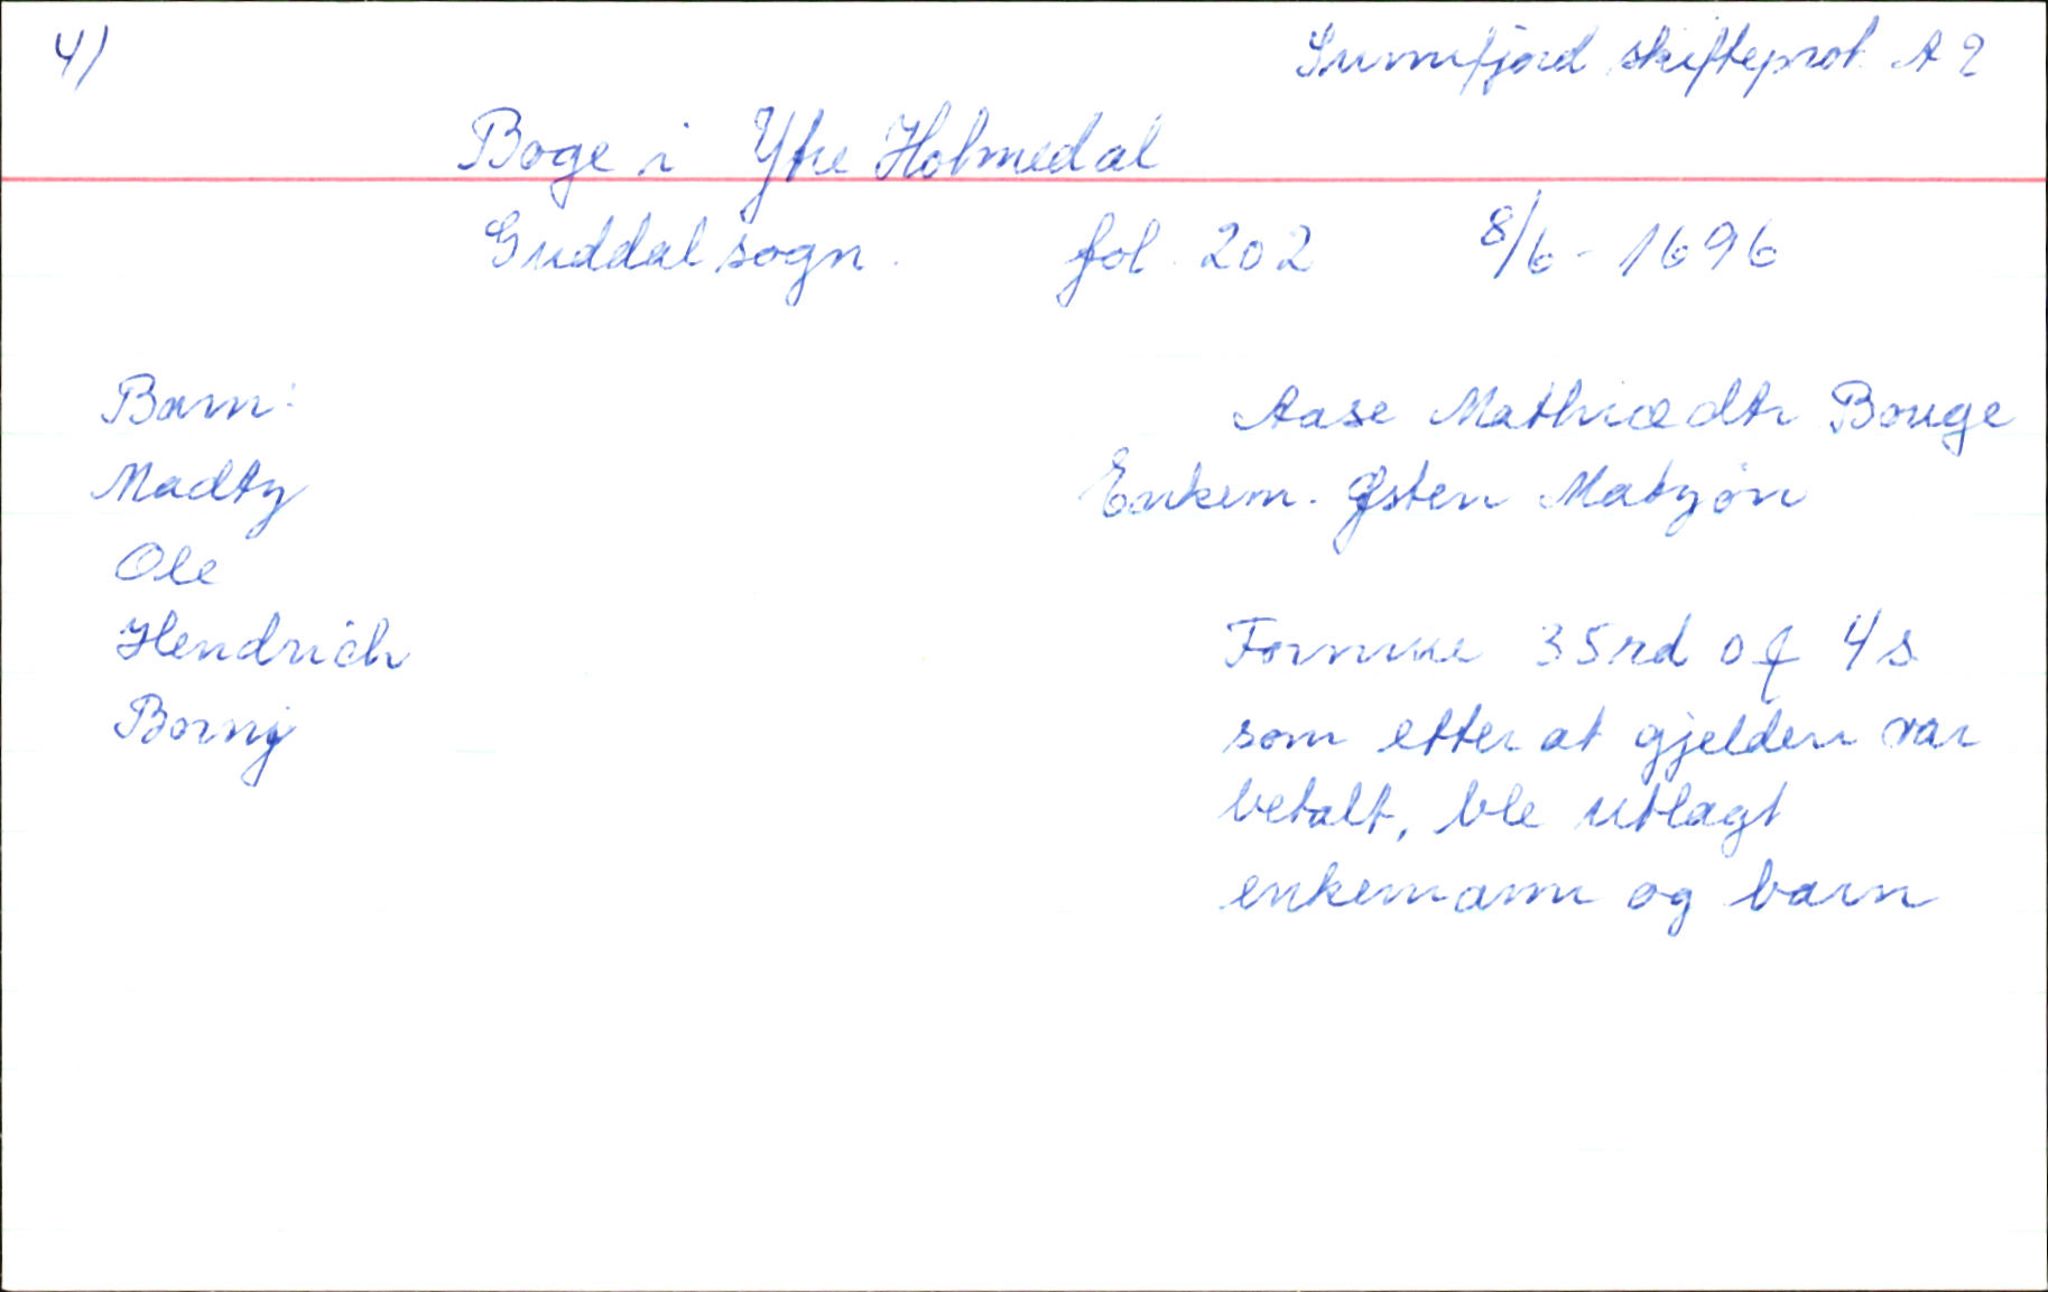 4)
Sunnfjord skifteprot. A 2
Boge i Ytre Holmedal
Guddal sogn. fol. 202 8/6 - 1696
Barn:
Aase Mathiædtr Bouge
Madtz
Enkem. Østen Matzøn
Ole
Hendrich
Formue 35 rd 0 f 4 s
Borni
som etter at gjelden var
betalt, ble utlagt
enkemann og barn